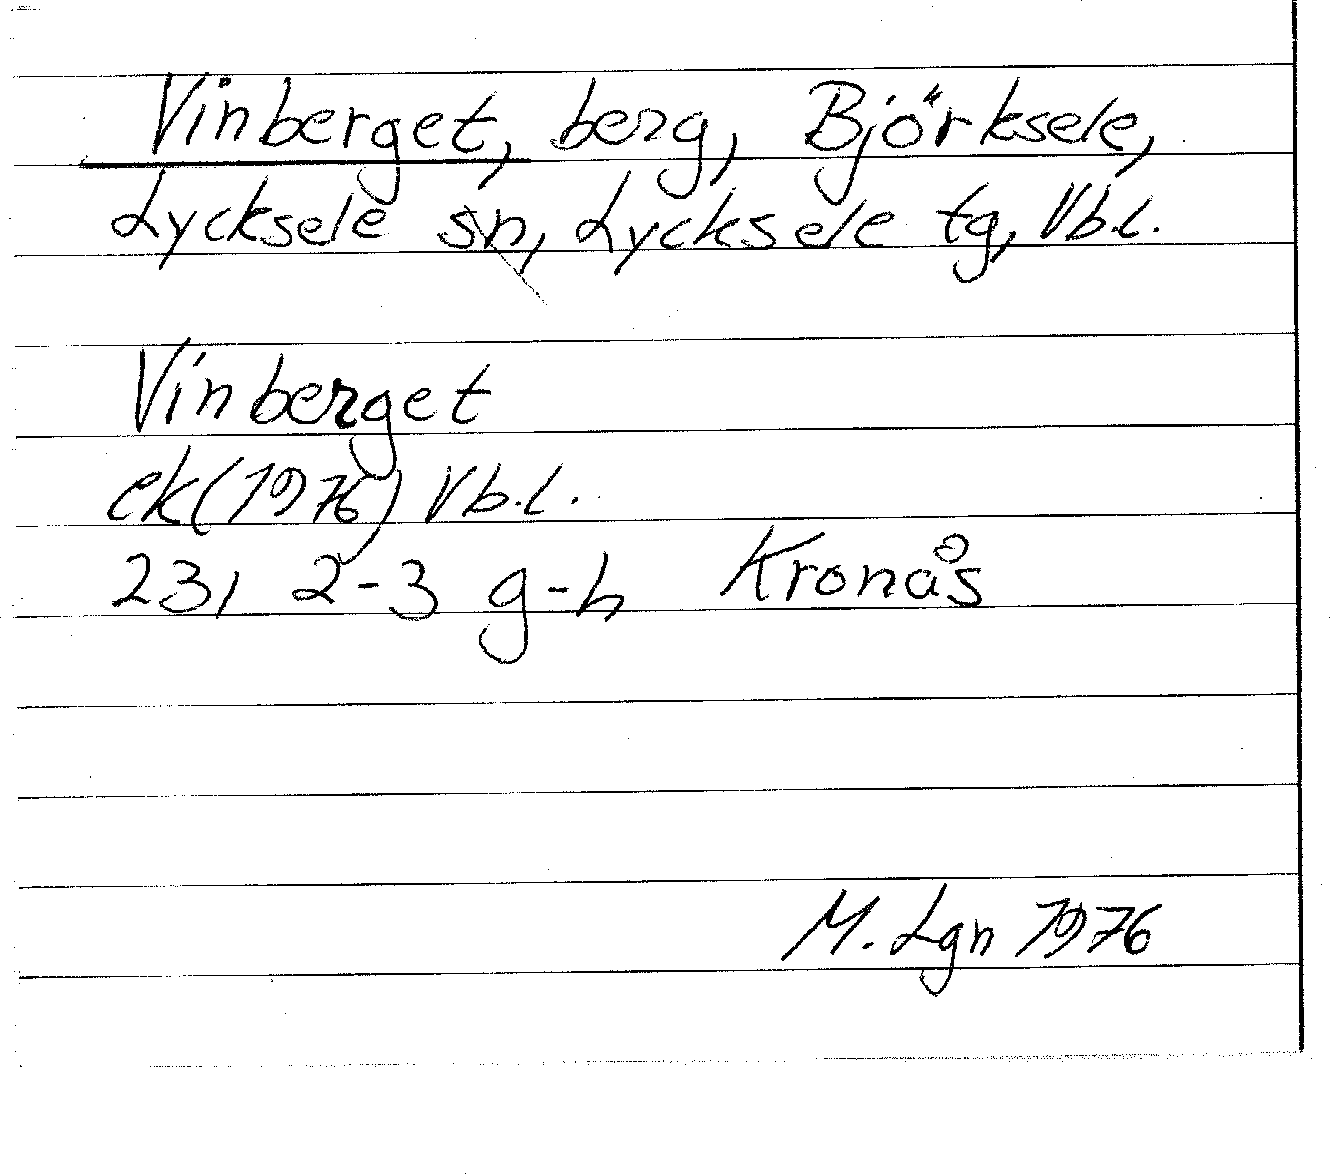 Vinberget, berg, Björksele,
Lycksele sn, Lycksele tg, Vb.l.
Vinberget
ek(1976) Vb.l.
23I 2-3 g-h Kronås
M. Lgn 1976